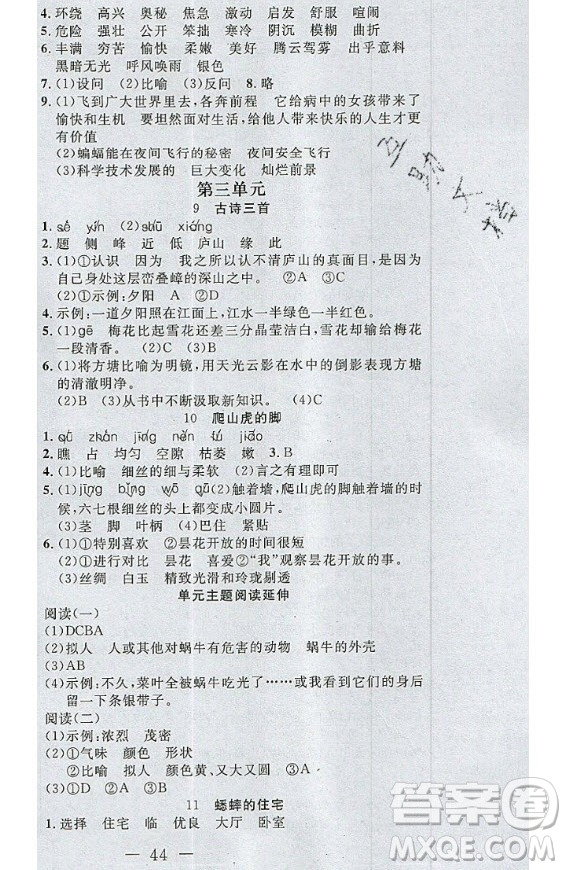 4.环绕 高兴 奥秘 焦急 激动 启发 舒服 喧闹
5.危险 强壮 公开 笨拙 寒冷 阴沉 模糊 曲折
6.丰满 穷苦 愉快 柔嫩 谢幕 腾云驾雾 出乎意料
黑暗无光 呼风唤雨 银色
7.(1)设问 (2)比喻 (3)反问 8.略
9.(1)飞到广大世界里去,各奔前程 它给病中的女孩带来了
愉快和生机 要快乐的生活,给他人带来快乐的人生才更
有价值
(2)蝙蝠能在夜间飞行的秘密 夜间安全飞行
(3)科学技术发展的 巨大变化 灿烂前景
第三单元
9 古诗三首
1.(1)sè yín (2)shū xiáng
2.题 侧 峰 近 低 庐山 缘 此
3.(1)①认识 因为 我之所以认不清庐山的真面目,是因为
自己身处这层峦叠嶂的深山之中。 ②A ③B
(2)①示例:夕阳 A ②D
4.示例:一道夕阳照在江面上,江水一半绿色一半红色。
5.(1)gē 梅花比起雪花还差三分晶莹洁白,雪花却输给梅花
一段清香。 (2)C (3)C (4)B
6.(1)将方塘比喻为明镜,用天光云影在水中的倒影表现方塘
的清澈明净。
(2)B (3)从书中不断汲取新知识。 (4)C
10 爬山虎的脚
1.qū zhàn jīng nèn tú jiāo
2.瞧 占 均匀 空隙 枯萎 嫩 3.B
4.(1)比喻 细丝的细与柔软 (2)言之有理即可
5.(1)jīng bǐng wō qū (2)触着墙,爬山虎的脚触着墙的时
候,六七根细丝的头上都变成小圆片。
(3)茎 脚 叶柄 (4)巴住 紧贴
6.(1)①特别喜欢 ②昙花开放的时间很短
(2)①进行对比 ②昙花 喜爱 ③“我”观察昙花开放的事
(3)丝绸 白玉 精致光滑和玲珑剔透
单元主题阅读延伸
阅读(一)
(1)DCBA
(2)拟人 人或其他对蜗牛有危害的动物 蜗牛的外壳
(3)A
(4)示例:不久,菜叶全被蜗牛吃光了……或我们的身后
留下一条银带子。
阅读(二)
(1)示例:浓烈 茂密
(2)①气味 颜色 形状
②比喻 拟人 颜色黄,又大又圆 ③A
(3)①D ②A
11 蟋蟀的住宅
1.选择 住宅 临 优良 大厅 卧室
— 44 —
答案圈
MXQE.COM